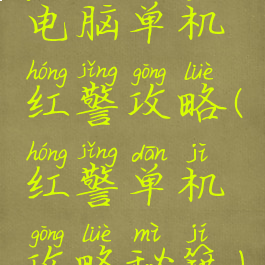 电脑单机
hóng jǐng gōng lüè
红警攻略(
hóng jǐng dān jī
红警单机
gōng lüè mì jí
攻略秘籍)